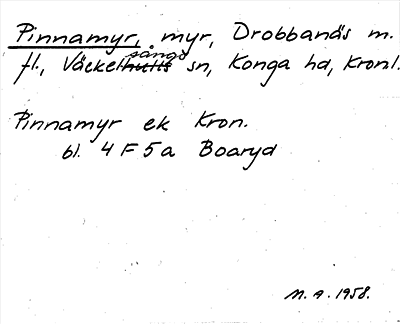 Pinnamyr, myr, Drobbanäs m.
fl., Väckelsång sn, Konga hd, Kronl.
Pinnamyr ek Kron.
bl. 4 F 5 a Boaryd
M. A. 1958.